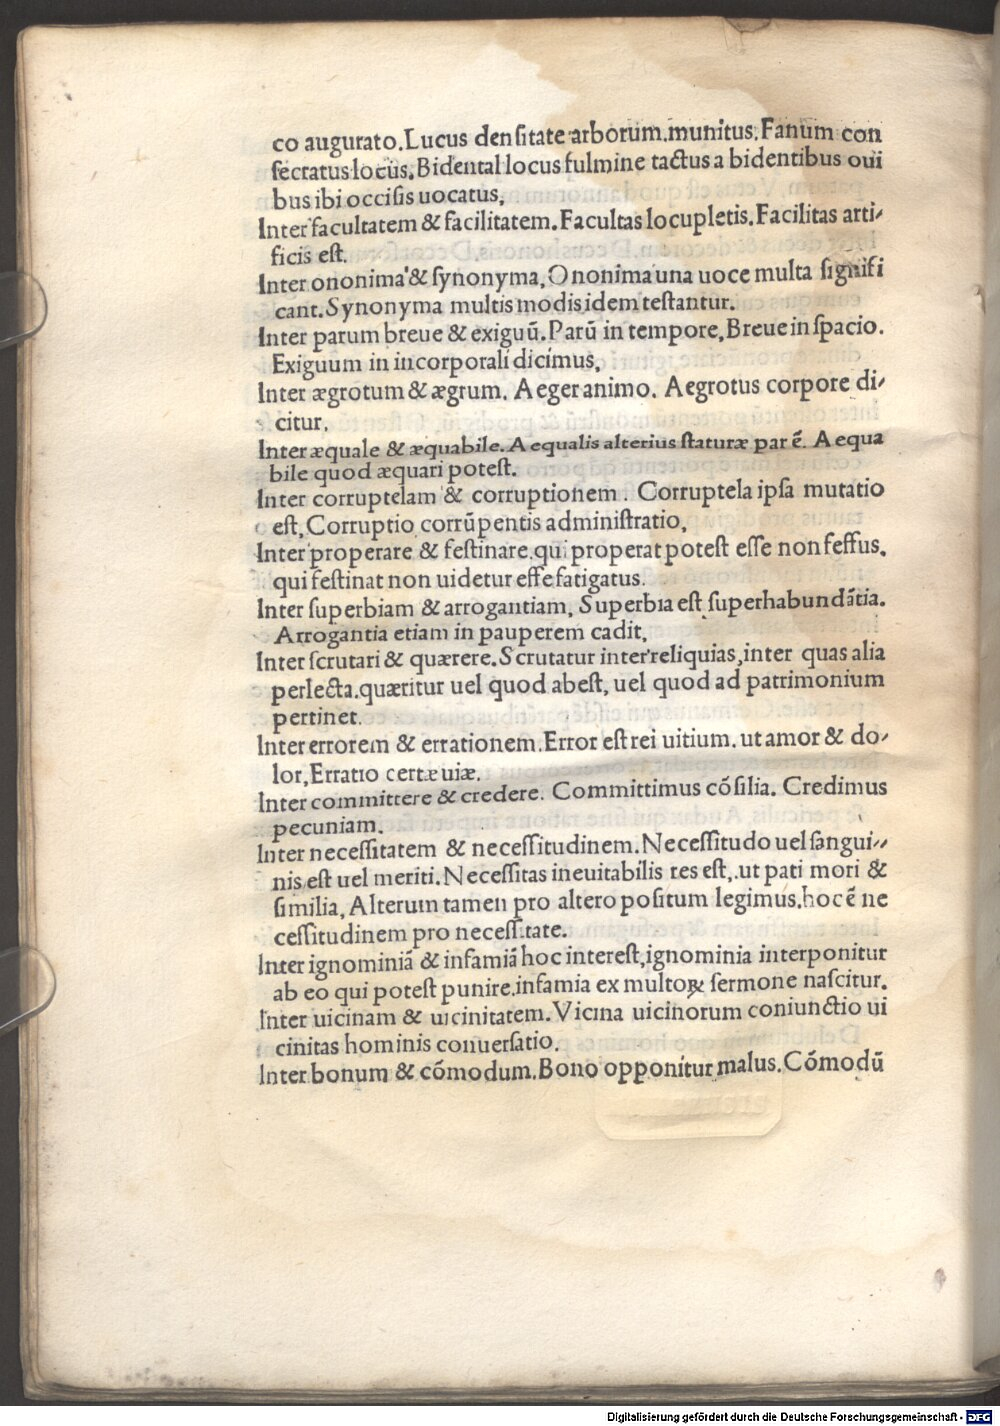 co augurato. Lucus densitate arborum munitus. Fanum con
secratus locus. Bidental locus fulmine tactus a bidentibus oui
bus ibi occisis uocatus.
Inter facultatem & facilitatem. Facultas locupletis. Facilitas arti-
ficis est.
Inter ononima & synonyma. Ononima una uoce multa signifi
cant. Synonyma multis modis idem testantur.
Inter parum breue & exiguũ. Parũ in tempore. Breue in spacio.
Exiguum in incorporali dicimus.
Inter ægrotum & ægrum. Aeger animo. Aegrotus corpore di-
citur.
Inter æquale & æquabile. Aequalis alterius staturæ par ē. Aequa
bile quod æquari potest.
Inter corruptelam & corruptionem. Corruptela ipsa mutatio
est. Corruptio corrũpentis administratio.
Inter properare & festinare. qui properat potest esse non fessus.
qui festinat non uidetur esse fatigatus.
Inter superbiam & arrogantiam. Superbia est superhabundãtia.
Arrogantia etiam in pauperem cadit.
Inter scrutari & quærere. Scrutatur inter reliquias, inter quas alia
perlecta. quæritur uel quod abest, uel quod ad patrimonium
pertinet.
Inter errorem & errationem. Error est rei uitium. ut amor & do-
lor. Erratio certæ uiæ.
Inter committere & credere. Committimus cõsilia. Credimus
pecuniam.
Inter necessitatem & necessitudinem. Necessitudo uel sangui-
nis est uel meriti. Necessitas ineuitabilis res est, ut pati mori &
similia. Alterum tamen pro altero positum legimus. hoc ē ne
cessitudinem pro necessitate.
Inter ignominiã & infamiã hoc interest, ignominia interponitur
ab eo qui potest punire. infamia ex multoꝝ sermone nascitur.
Inter uicinam & uicinitatem. Vicina uicinorum coniunctio ui
cinitas hominis conuersatio.
Inter bonum & cõmodum. Bono opponitur malus. Cõmodũ
Digitalisierung gefördert durch die Deutsche Forschungsgemeinschaft - DFG